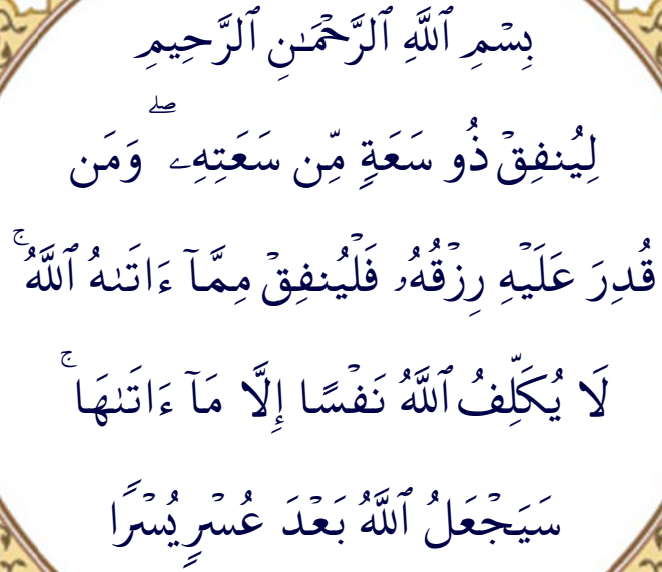 بِسْمِ ٱللَّهِ ٱلرَّحْمَـٰنِ ٱلرَّحِيمِ
لِيُنفِقْ ذُو سَعَةٍ مِّن سَعَتِهِۦ ۖ وَمَن
قُدِرَ عَلَيْهِ رِزْقُهُۥ فَلْيُنفِقْ مِمَّآ ءَاتَىٰهُ ٱللَّهُ ۚ
لَا يُكَلِّفُ ٱللَّهُ نَفْسًا إِلَّا مَآ ءَاتَىٰهَا ۚ
سَيَجْعَلُ ٱللَّهُ بَعْدَ عُسْرٍ يُسْرًا